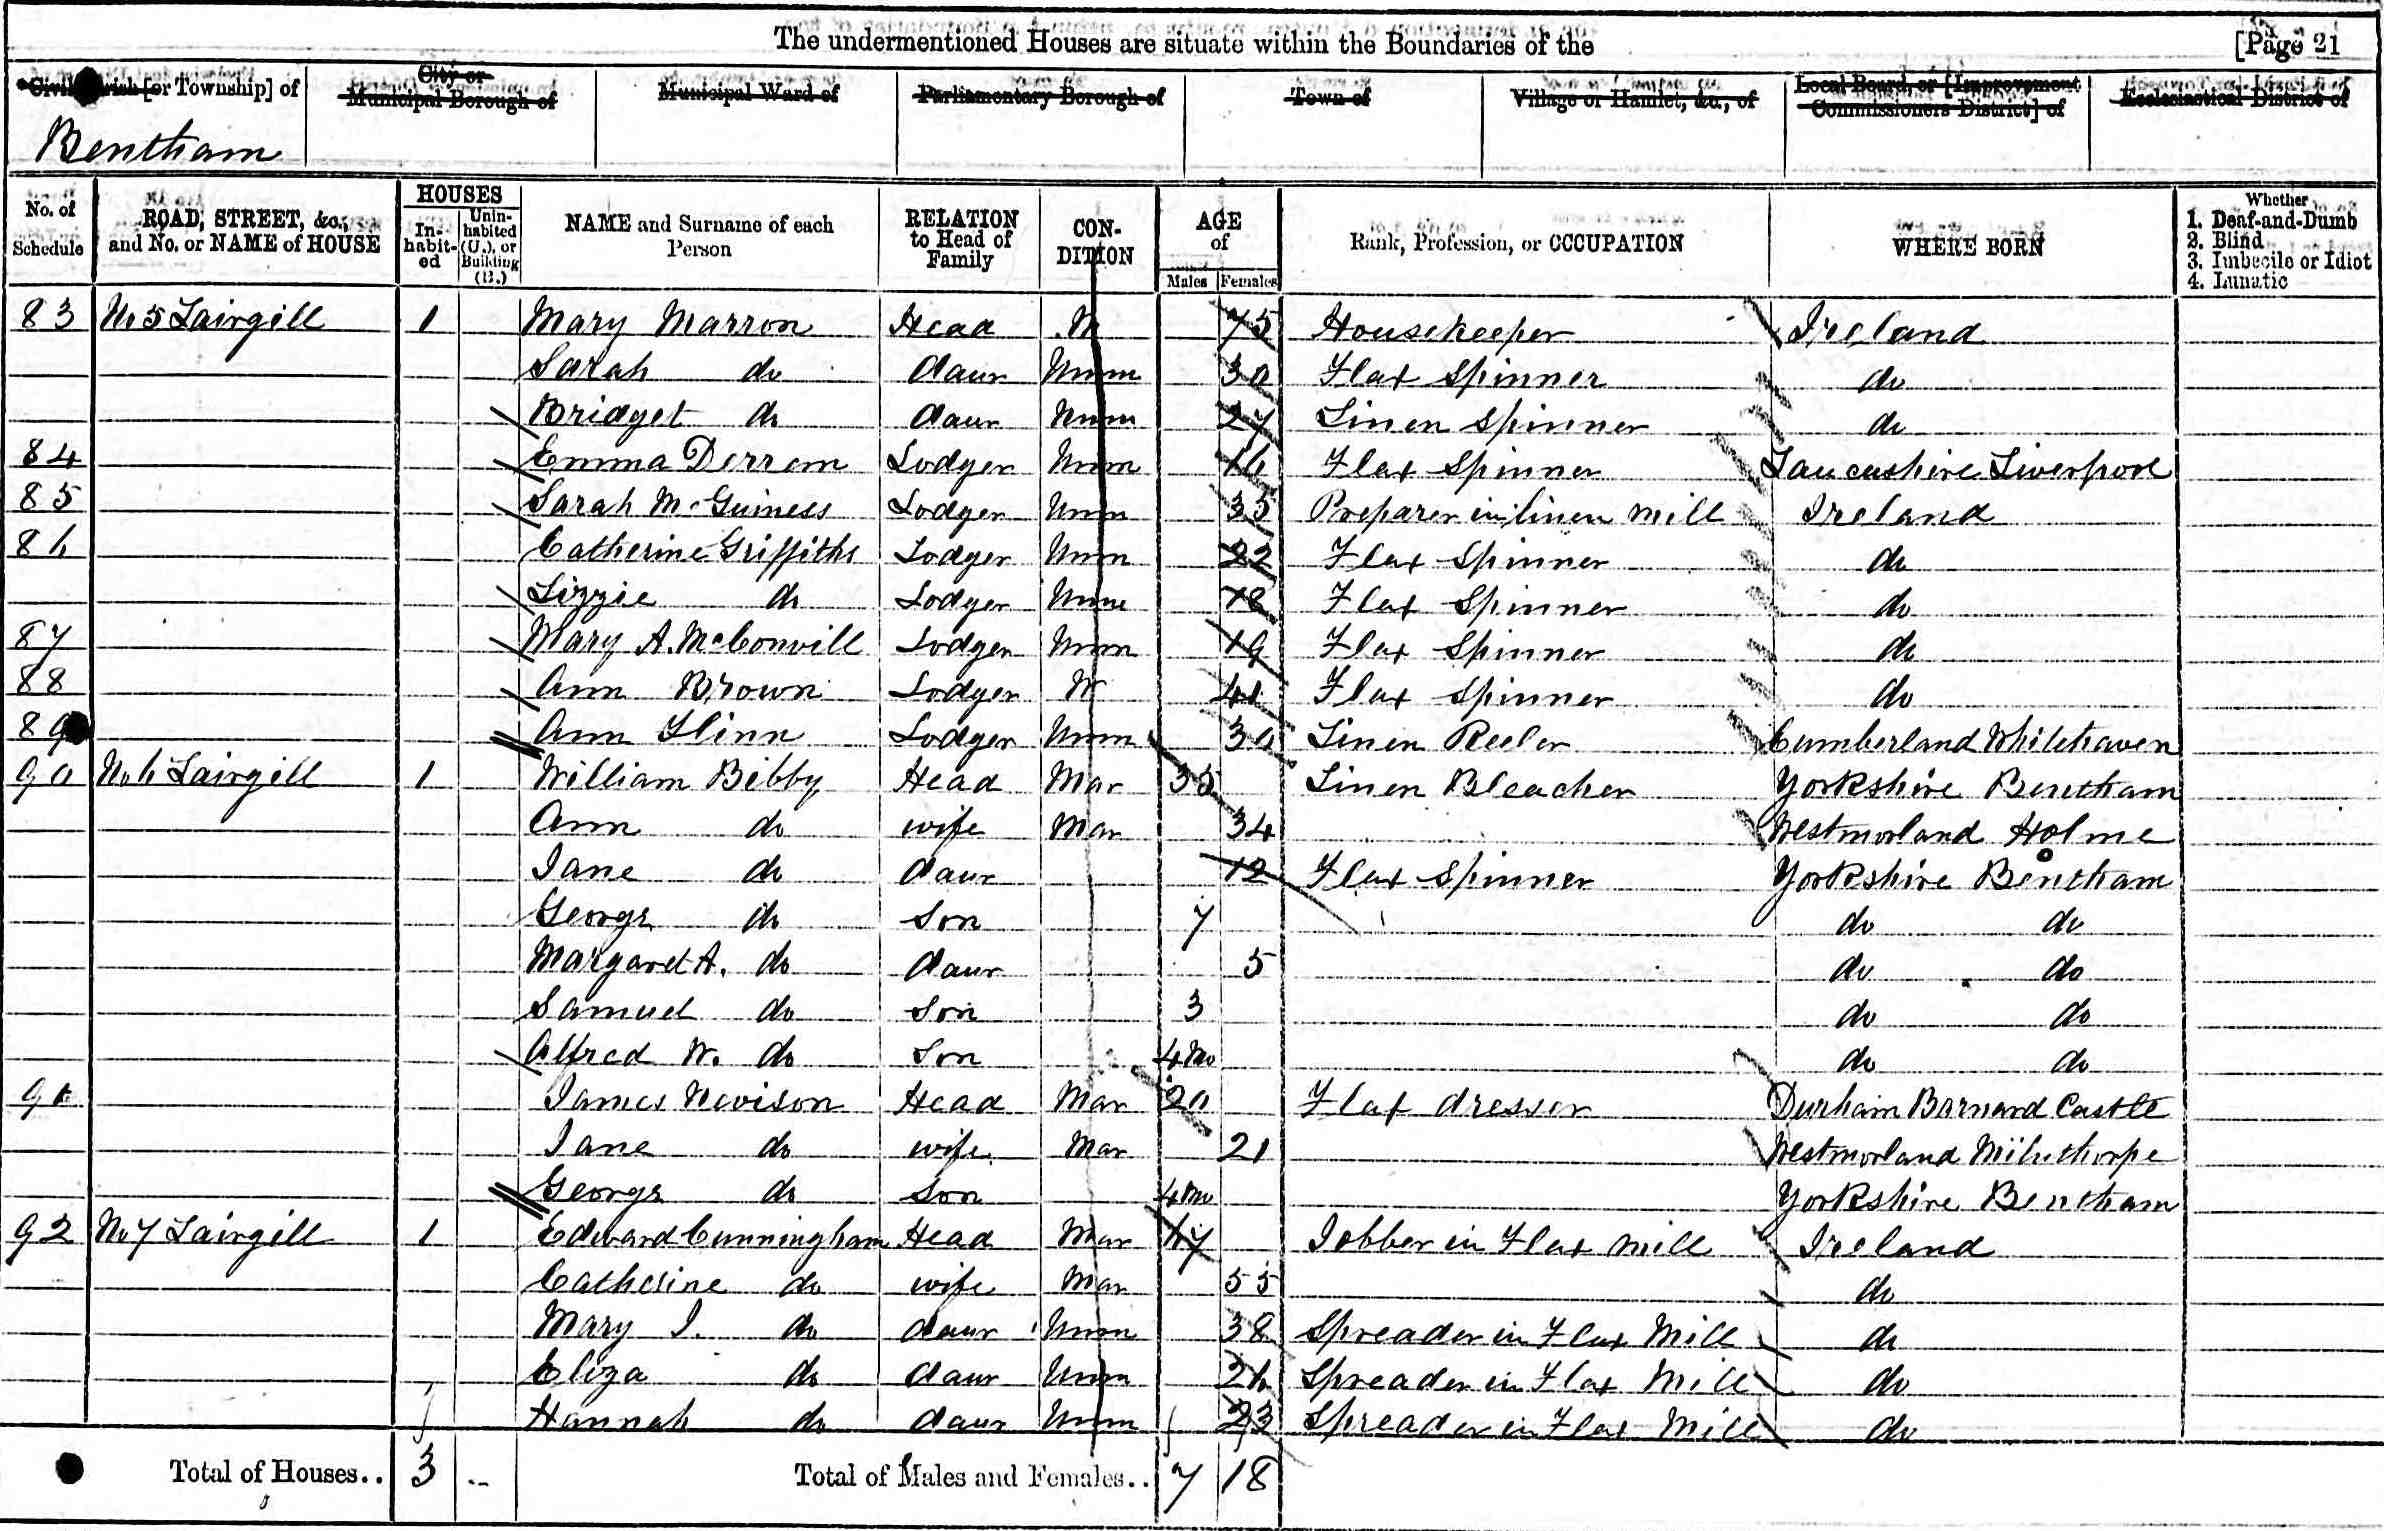 The undermentioned Houses are situate within the Boundaries of the [Page 21
Civil Parish [or Township] of City or Municipal Borough of Municipal Ward of Parliamentary Borough of Town of Village or Hamlet, &c., of Local Board, or [Improvement Commissioners District] of Ecclesiastical District of
Bentham
No. of Schedule ROAD, STREET, &c., and No. or NAME of HOUSE HOUSES Inhabited Uninhabited (U.), or Building (B.) NAME and Surname of each Person RELATION to Head of Family CONDITION AGE of Males Females Rank, Profession, or OCCUPATION WHERE BORN Whether 1. Deaf-and-Dumb 2. Blind 3. Imbecile or Idiot 4. Lunatic
83 No 5 Lairgill 1 Mary Marron Head W 75 Housekeeper Ireland
Sarah do daur Unm 30 Flax Spinner do
Bridget do daur Unm 27 Linen Spinner do
84 Emma Derrem Lodger Unm 16 Flax Spinner Lancashire Liverpool
85 Sarah McGuiness Lodger Unm 35 Preparer in linen Mill Ireland
86 Catherine Griffiths Lodger Unm 22 Flax Spinner do
Lizzie do Lodger Unm 18 Flax Spinner do
87 Mary A. McConvill Lodger Unm 19 Flax Spinner do
88 Ann Brown Lodger W 41 Flax Spinner do
89 Ann Flinn Lodger Unm 30 Linen Reeler Cumberland Whitehaven
90 No 6 Lairgill 1 William Bibby Head Mar 35 Linen Bleacher Yorkshire Bentham
Ann do wife Mar 34 Westmorland Holme
Jane do daur 12 Flax Spinner Yorkshire Bentham
George do Son 7 do do
Margaret A. do daur 5 do do
Samuel do Son 3 do do
Alfred W. do Son 4 Mo do do
91 James Nevison Head Mar 20 Flax dresser Durham Barnard Castle
Jane do wife Mar 21 Westmorland Milnthorpe
George do Son 4 Mo Yorkshire Bentham
92 No 7 Lairgill 1 Edward Cunningham Head Mar 67 Jobber in Flax Mill Ireland
Catherine do wife Mar 55 do
Mary J. do daur Unm 38 Spreader in Flax Mill do
Eliza do daur Unm 26 Spreader in Flax Mill do
Hannah do daur Unm 23 Spreader in Flax Mill do
Total of Houses.. 3 -- Total of Males and Females.. 7 18